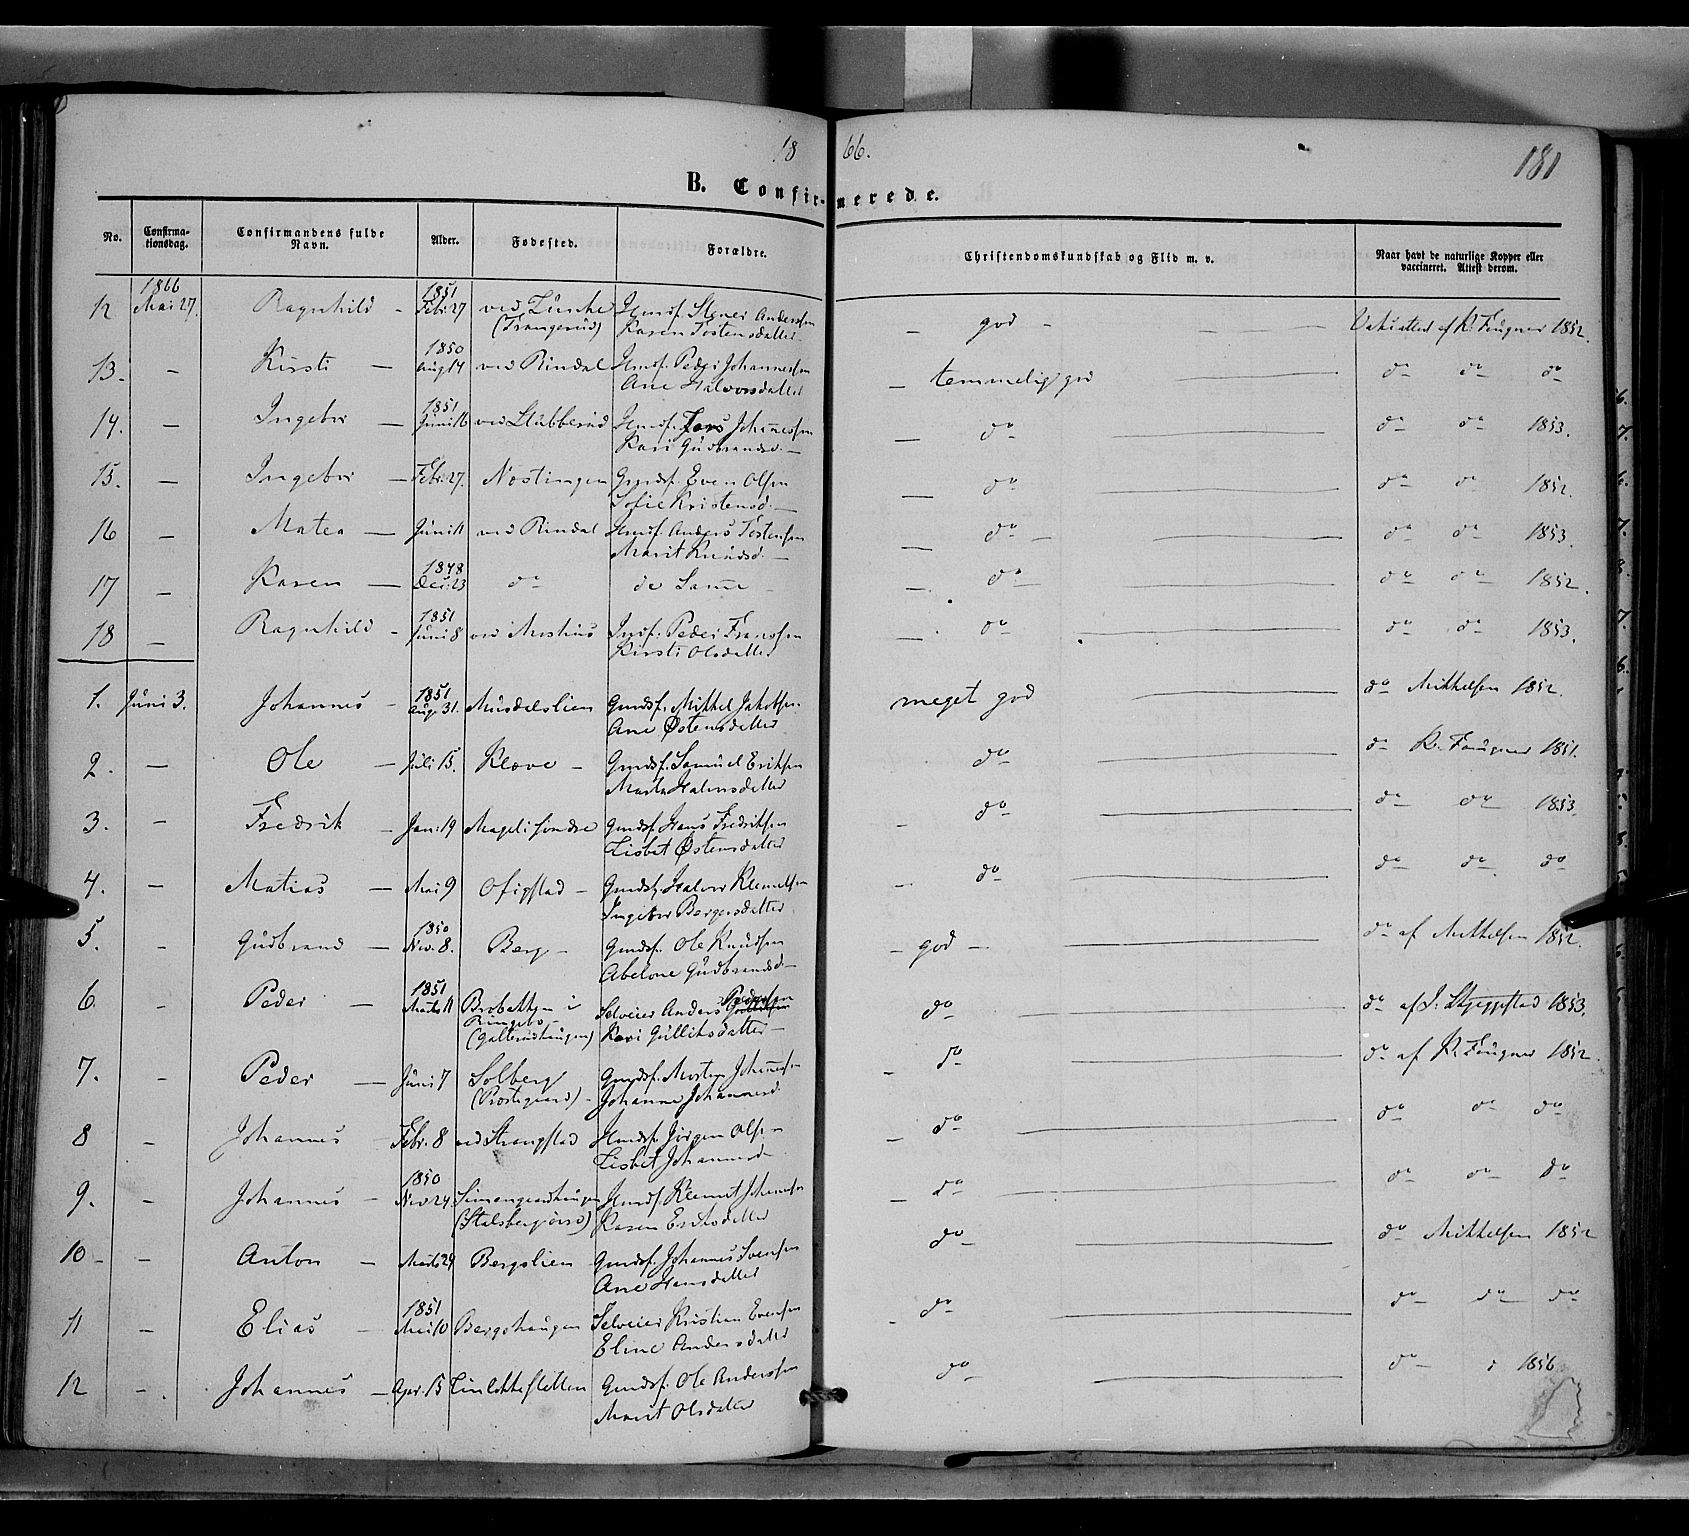 18 66.
181
B. Confirmerede.
No. Confirmationsdag. Confirmandens fulde Navn. Alder. Fødested. Forældre. Christendomskundskab og Flid m. v. Naar havt de naturlige Kopper eller vaccineret. Attest derom.
12 1866 Mai 27. Ragnhild - 1851 Febr. 27 ved
Karen Tostensdatter - god - af R. Feugner 1852.
13. - Kirsti - 1850 Aug 14 ved Rindal Hmdsf. Peder Johannessen
Ane Halvorsdatter - temmelig god - do do do
14. - Ingebor - 1851 Juni 16 ved Stubberud Hmdsf. Lars Johannessen
Kari Gudbrandsd. - do - do do 1853.
15. - Ingebor - Febr. 27. Nostingen Gmdsf. Even Olsen
Sofie Kristensd. - do - do do 1852.
16 - Matea - Juni 11 ved Rindal Hmdsf. Anders Tostensen
Marit Knudsd. - do - do do 1853.
17 - Karen - 1848 Dec. 23 do de Samme - do - do do 1852.
18 - Ragnhild - 1851 Juni 8 ved Peder Fransen
Kirsti Olsdatter - do - do do 1853.
1. Juni 3. Johannes - 1851 Aug. 31. Musdalslien Gmdsf. Mikkel Jakobsen
Ane Østensdatter meget god - do Mikkelsen 1852.
2. - Ole - Juli 15. Kløve - Gmdsf. Samuel Eriksen
do do R. Feugner 1851.
3. - Fredrik - Jan. 19 Mageli søndre Gmdsf. Hans Fredriksen
Lisbet Østensdatter - do - do do 1853.
4. - Matias - Mai 9 Ofigstad - Gmdsf. Halvor Klemetsen
Ingebor Bergersdatter - do - do do do
5. - Gudbrand - 1850 Nov. 8. Berg - Gmdsf. Ole Knudsen
Abelone Gudbrandsd. - god - do af Mikkelsen 1852.
6. - Peder - 1851 Marts 11 Brobakken i Ringebo Selveier Anders Pedersen
Kari Gulliksdatter - do - do af S. Skjeggestad 1853.
7. - Peder - Juni 7 Solberg (Prestegaard) - Gmdsf. Morten Johannessen
Johanne Johannesd. - do - do af R. Feugner 1852.
8 - Johannes - Febr. 8 ved Strangstad Hmdsf. Jørgen Olsen
Lisbet Johannesd. - do - do do do
9. - Johannes - 1850 Nov 24. Hmdsf. Klemet Johannessen
Karen Eriksdatter - do - do do do
10 - - Anton - Marts 24 Bergslien Gmdsf. Johannes Svensen
Ane Hansdatter do - do Mikkelsen 1852
11 - Elias - 1851 Mai 10 Bergshaugen Selveier Kristian Evensen
Eline Andersdatter - do - do do do
12 - Johannes - Apr. 15 Gmdsf. Ole Anderssen
Marit Olsdatter do - do 1856